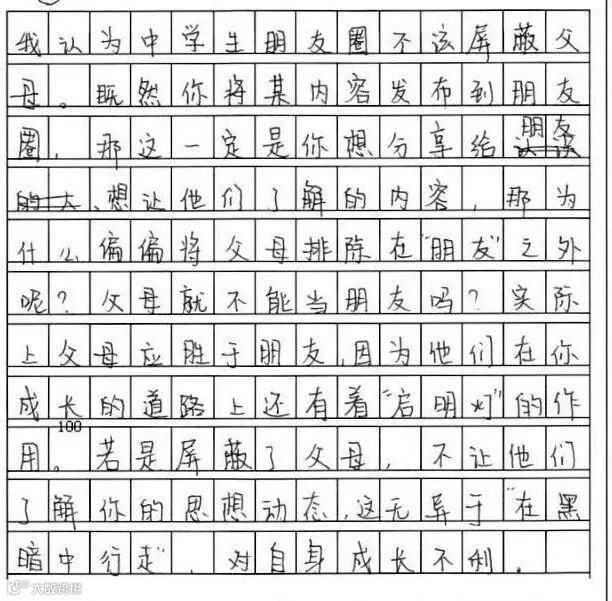 我认为中学生朋友圈不该屏蔽父
母。既然你将某内容发布到朋友
圈，那这一定是你想分享给朋友
、想让他们了解的内容，那为
什么偏偏将父母排除在"朋友"之外
呢？父母就不能当朋友吗？实际
上父母应胜于朋友，因为他们在你
成长的道路上还有着"启明灯"的作
100
用。若是屏蔽了父母，不让他们
了解你的思想动态，这无异于"在黑
暗中行走"，对自身成长不利。
大数跨境